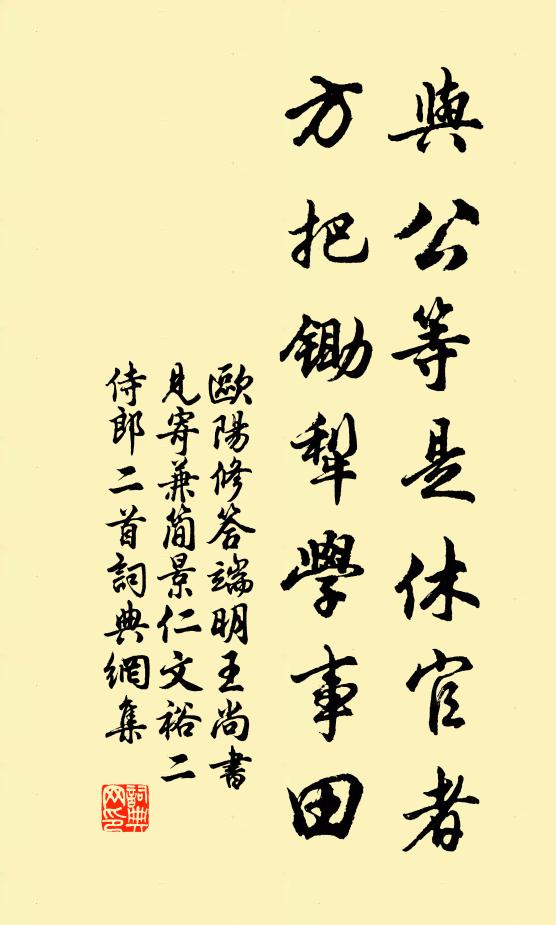 與公等是休官者
方把鋤犁學事田
歐陽修答端明王尚書
見寄兼簡景仁文裕二
侍郎二首詞典網集
詞典網印